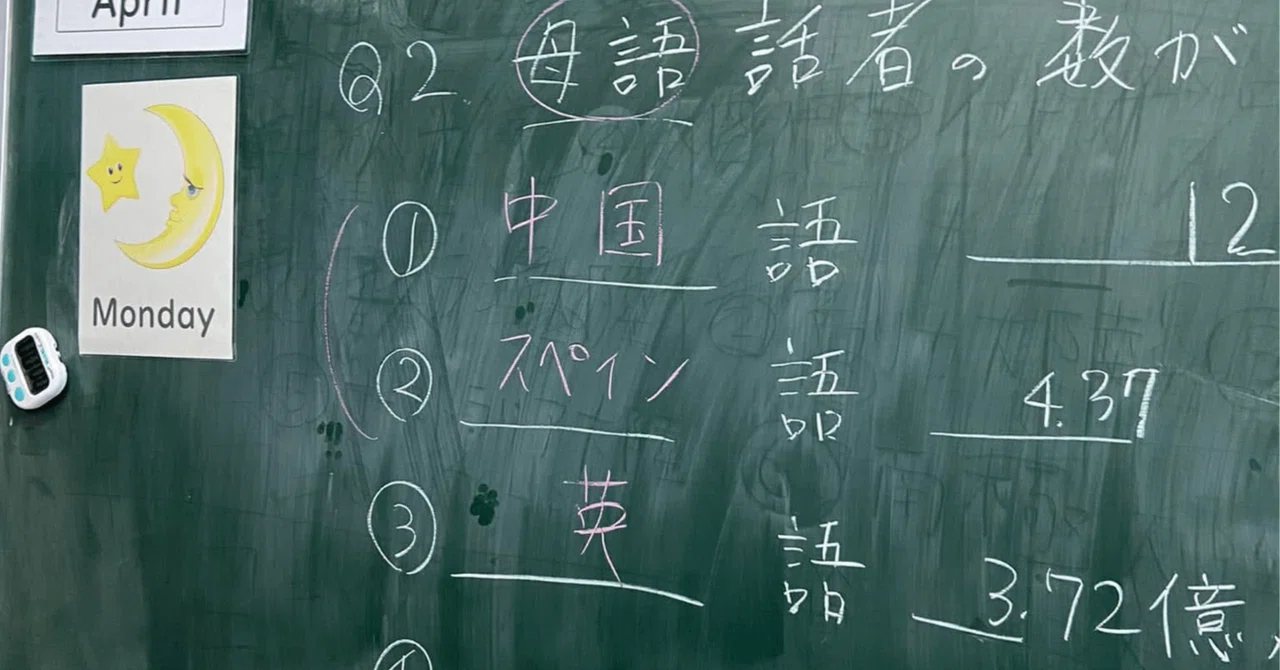 April
Monday
Q2 母語話者の数が
① 中国語 12
② スペイン語 4.37
③ 英語 3.72億